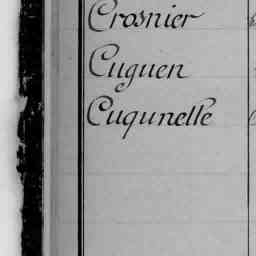 Crosnier
Cuguen
Cuqunelle